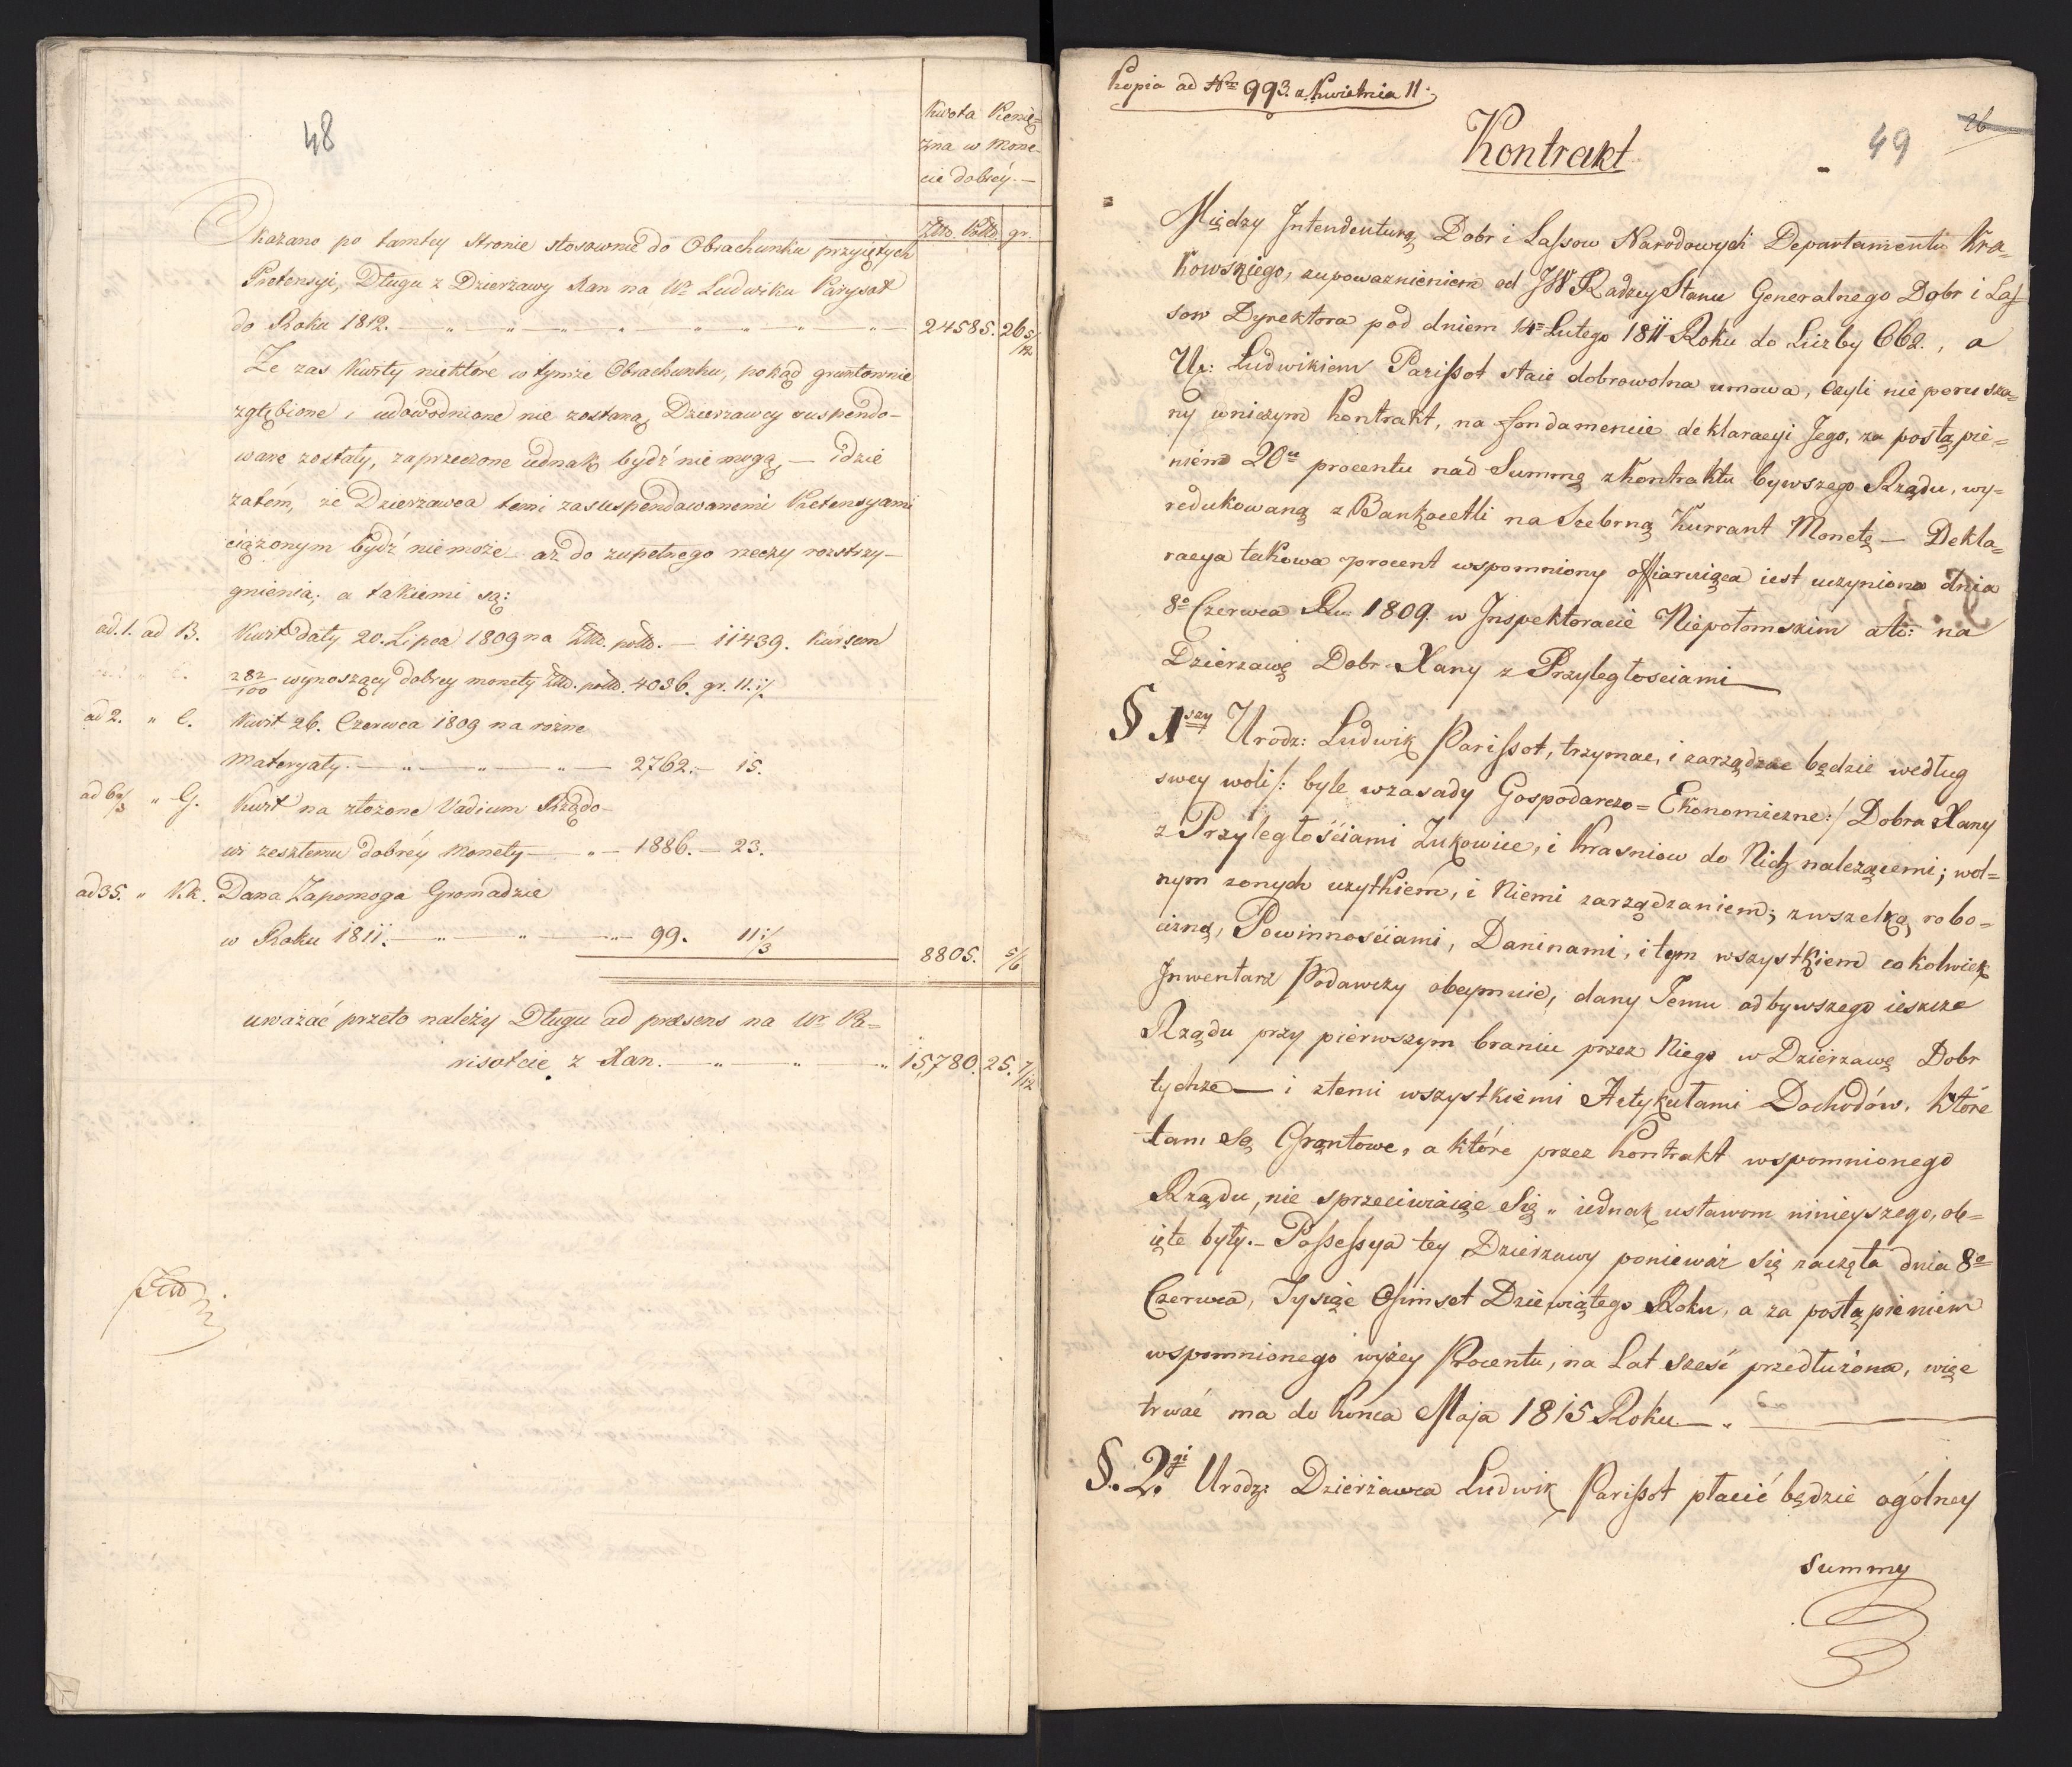 48
Kwota Pienię=
żna w Mone-
cie dobréy. —
Złto. Polto. gr.
Okazano po tamtey stronie stosownie do Obrachunku przyiętych
Pretensyi, Długu z Dzierżawy Xan na Wm Ludwiku Parysot
do Roku 1812. — „ — „ — „ — „ — „ — „ — „ — 24585. 26 5/12
Że zas Kwity niektóre w tymże Obrachunku, pokąd gruntownie
zgłębione, i udowodnione nie zostaną, Dzierzawcy suspendo-
wane zostały, zaprzeczone iednak bydź nie mogą — idzie
zatém, że Dzierzawca temi zasuspendowanemi Pretensyami
ciążonym bydź nie może aż do zupełnego rzeczy rozstrzy-
gnienia; a takiemi są:
ad. 1. ad B. Kwit daty 20. Lipca 1809 na Złto. polto. — 11439. Kursem
282/100 wynoszący dobrey monety Złto. polto. 4036. gr. 11. 1/
ad 2. „ C. Kwit 26. Czerwca 1809 na rożne
Materyały. — „ — „ — „ — 2762. — 15.
ad 6 2/3 „ G. Kwit na złożone Vadium Rządo-
wi zeszłemu dobréy Monety — „ — 1886. — 23.
ad 35. „ Kk. Dana Zapomoga Gromadzie
w Roku 1811. — „ — „ — „ — 99. 11 1/3
8805. 5/6
uważać przeto należy Długu ad præsens na Wm Pa=
risotcie z Xan. — „ — „ — „ 15,780. 25. 7/12
Kopia ad Nrm 993. z Kwietnia 11.
Kontrakt
49
26
Między Intendenturą Dobr i Lassow Narodowych Departamentu Kra=
kowskiego, zupoważnieniem od JW Radzcy Stanu Generalnego Dobr i Las
sow Dyrektora pod dniem 14= Lutego 1811 Roku do Liczby 662., a
Ur: Ludwikiem Parissot staie dobrowolna umowa, czyli nieporusza=
ny wniczym Kontrakt, na fondamencie deklaracyi Jego, za postąpie=
niém 20u procentu nad Summę z Kontraktu bywszego Rządu, wy=
redukowaną z Bankocetli na Srebrną Kurrant Monetę — Dekla=
racya takowa procent wspomniony offiaruiąca iest uczyniona dnia
8o Czerwca Ru 1809. w Inspektoracie Niepołomskim ato: na
Dzierzawę Dobr Xany z Przyległosciami —
§ 1szy Urodz: Ludwik Parissot, trzymac, i zarządzac będzie według
swey woli /: byle wzasady Gospodarczo = Ekonomiczne :/ Dobra Xany
z Przyległościami Żukowice, i Krasniow do Nich nalezącemi; wol=
nym zonych uzytkiem, i Niemi zarządzaniem; zwszelką robo=
cizną, Powinnościami, Daninami, i tym wszystkiem cokolwiek
Inwentarz Podawczy obeymuie, dany Temu od bywszego ieszcze
Rządu przy pierwszym braniu przez Niego w Dzierżawę Dobr
tychże — i ztemi wszystkiemi Artykułami Dochodów, które
tam są Gruntowe, a które przez Kontrakt wspomnionego
Rządu, nie sprzeciwiaiąc się „ iednak ustawom ninieyszego, ob=
ięte były. — Possessya tey Dzierzawy ponieważ się zaczęła dnia 8o
Czerwca, Tysiąc Osimset Dziewiątego Roku, a za postąpieniem
wspomnionego wyżey Procentu, na Lat sześć przedłużona, więc
trwać ma do końca Maja 1815 Roku — . —
§. 2gi Urodz: Dzierżawca Ludwik Parissot płacić będzie ogólney
Summy